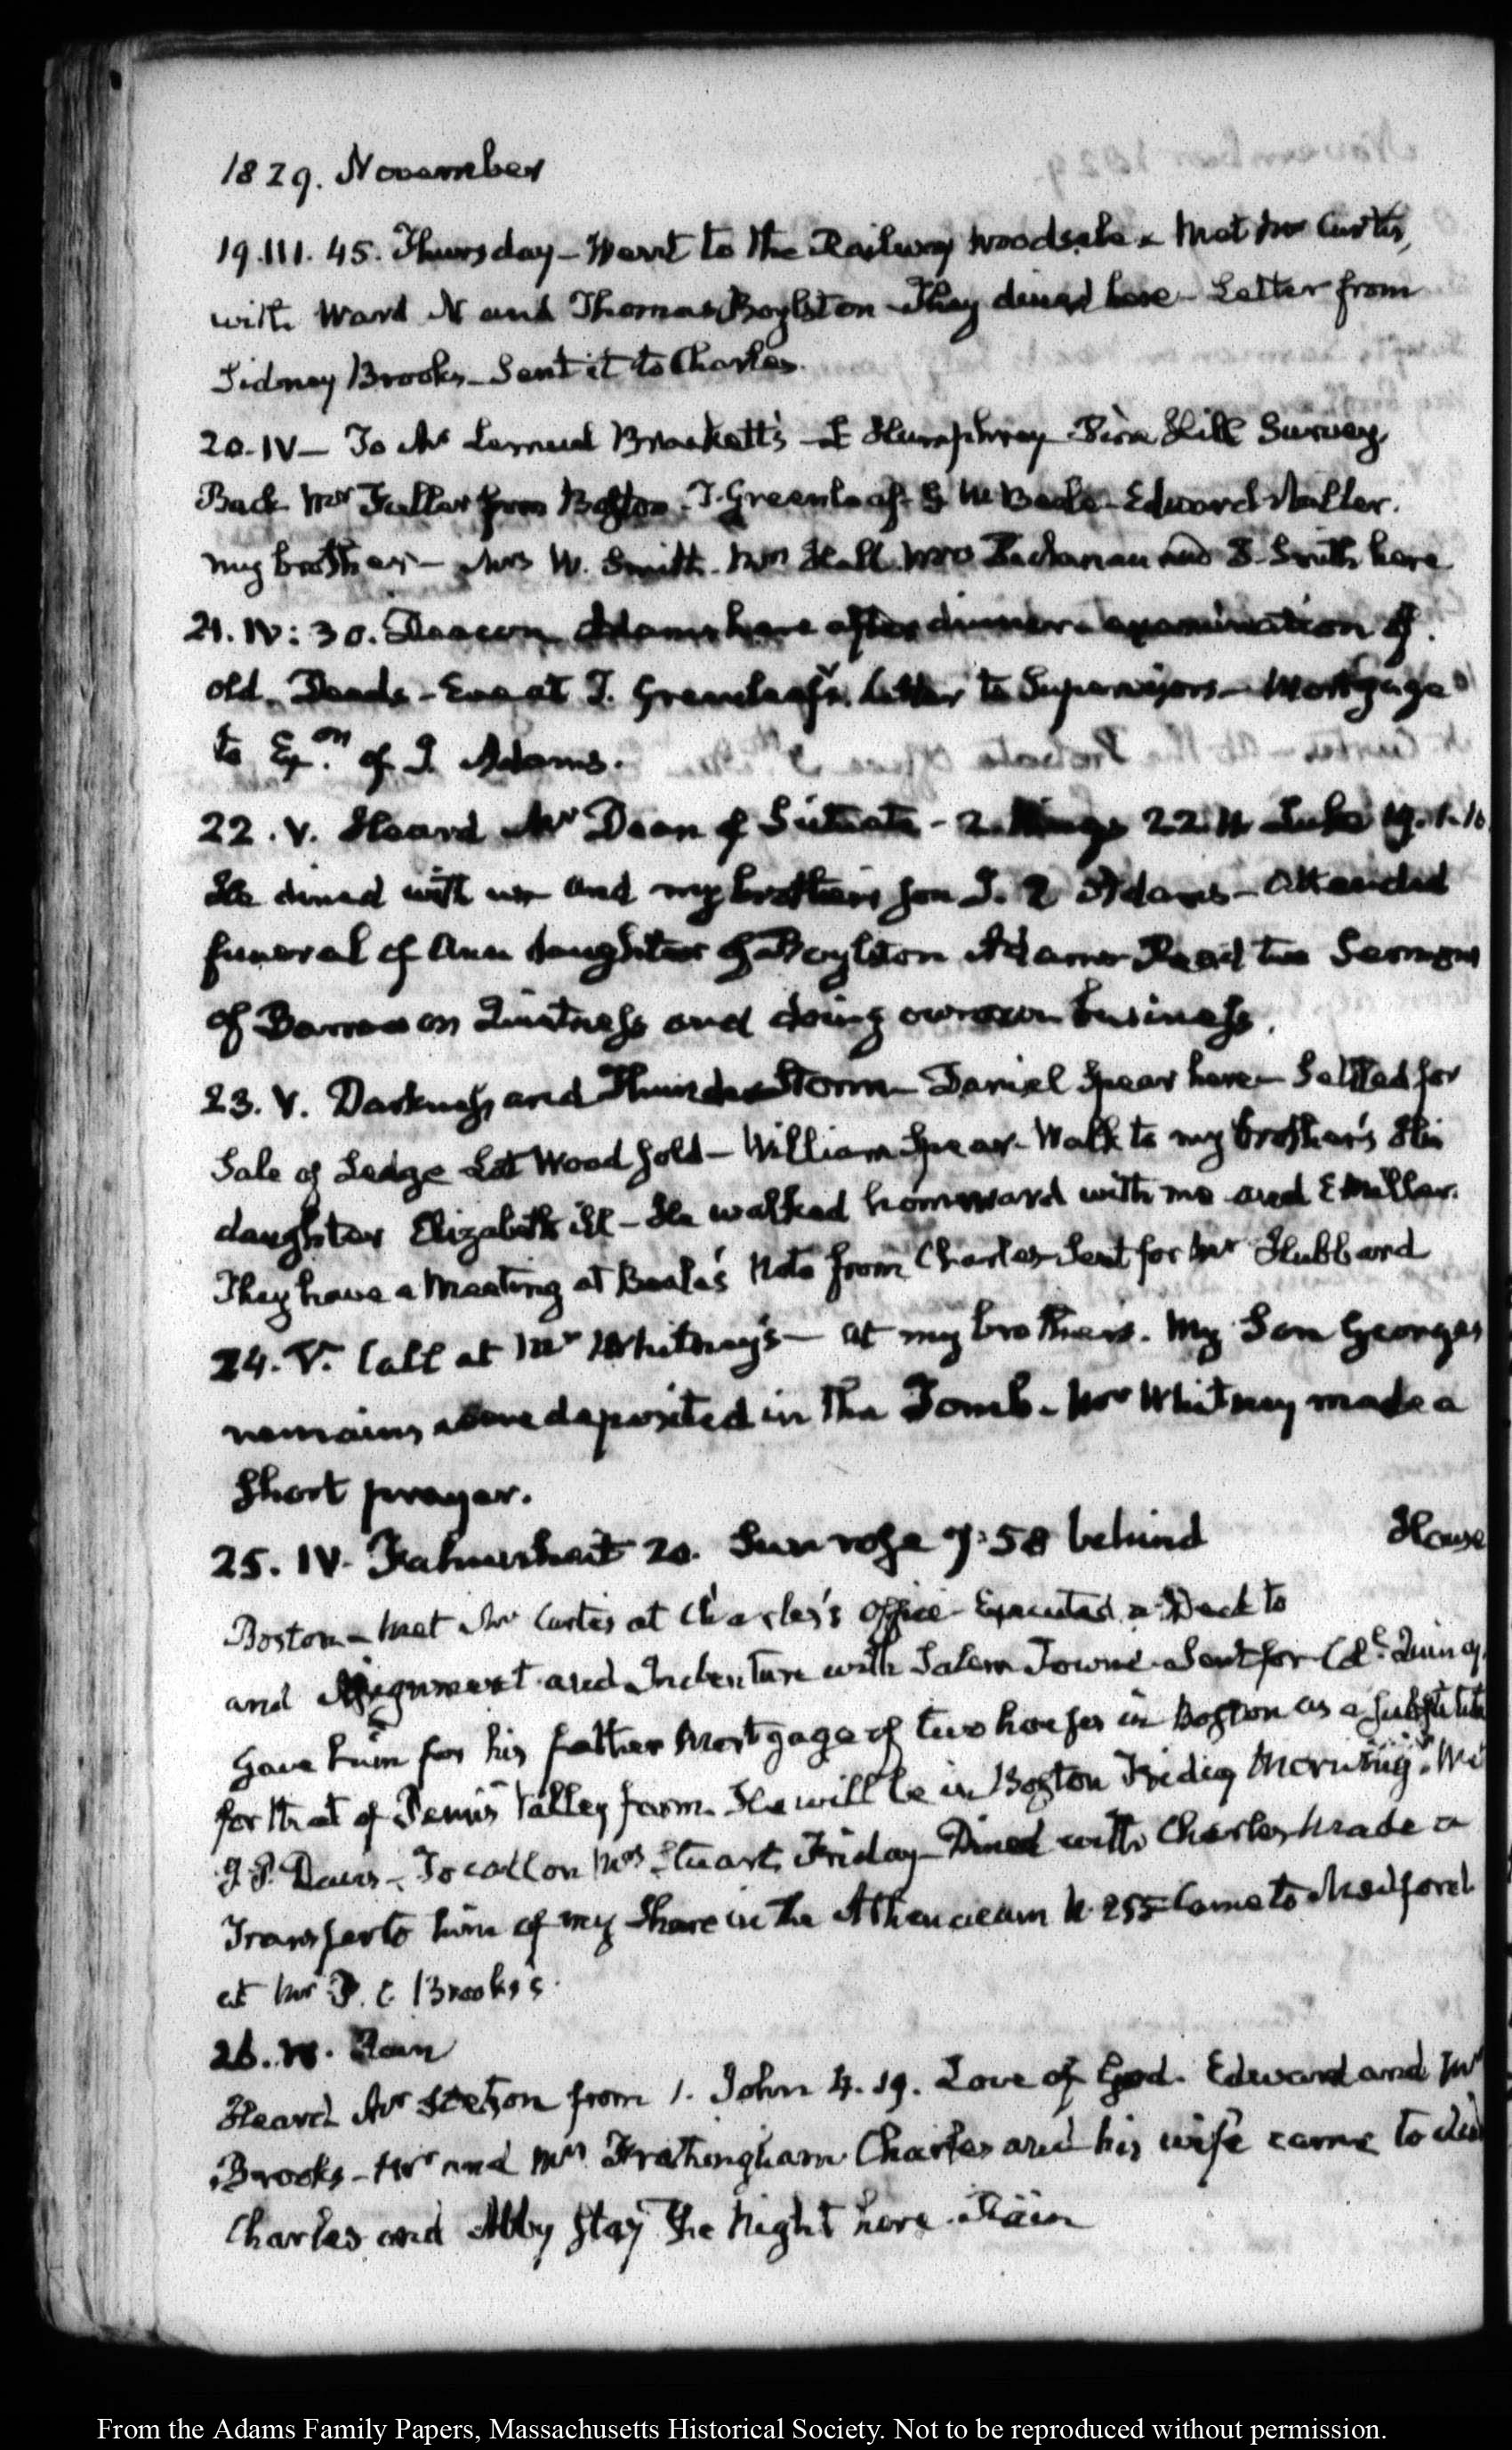 1829. November
19. III. 45. Thursday – Went to the Railway Woodsale & Met Mr Curtis,
with Ward N and Thomas Boylston – They dined here – Letter from
Sidney Brooks – Sent it to Charles.
20. IV – To Mr Lemuel Brackett's – Humphrey – Hill Survey
Back Mr Fuller from Boston – T. Greenleaf – Beale – Edward Miller.
my brother – Mrs W. Smith. Hall. Mrs Buchanan and Smith here
21. IV: 30. Deacon Adams here after dinner – examination of
old Deeds – Eve at T. Greenleaf's. Letter to Supervisors – Mortgage
to Exon. of J. Adams.
22. V. Heard Mr Dean of Situate – 2. Kings 22. Luke 19. 1-10
He dined with us and my brother's son J. Q Adams – Attended
funeral of Ann daughter of Boylston Adams Read two Sermons
of Barrow on Quietness and doing our own business.
23. V. Darkness and Thunder Storm – Daniel Spear here – Settled for
Sale of Ledge Lot Wood sold – William Spear – Walk to my brother's His
daughter Elizabeth ill – He walked homeward with me and E Miller.
They have a Meeting at Beale's Note from Charles Sent for Mr Hubbard
24. V. Call at Mr Whitney's – at my brother's. My Son George's
remains were deposited in the Tomb – Mr Whitney made a
short prayer.
25. IV. Fahrenheit 20. Sun rose 7:58 behind House
Boston – met Mr Curtis at Charles's office – Executed a Deed to
and Assignment and Indenture with Salem Towne – Sent for Col. Quincy
Gave him for his father Mortgage of two houses in Boston as a substitute
for that of Penn's Valley farm. He will be in Boston Friday Morning.
Davis – To call on Mrs Stuart, Friday – Dined with Charles, made a
Transfer to him of my Share in the Athenaeum N. 255 – Came to Medford
at Mr P. C Brooks's.
26. IV. Rain
Heard Mr Stetson from 1. John 4. 19. Love of God. Edward and Mrs
Brooks – Mr and Mrs Frothingham Charles and his wife came to dine
Charles and Abby stay the Night here – Rain
From the Adams Family Papers, Massachusetts Historical Society. Not to be reproduced without permission.